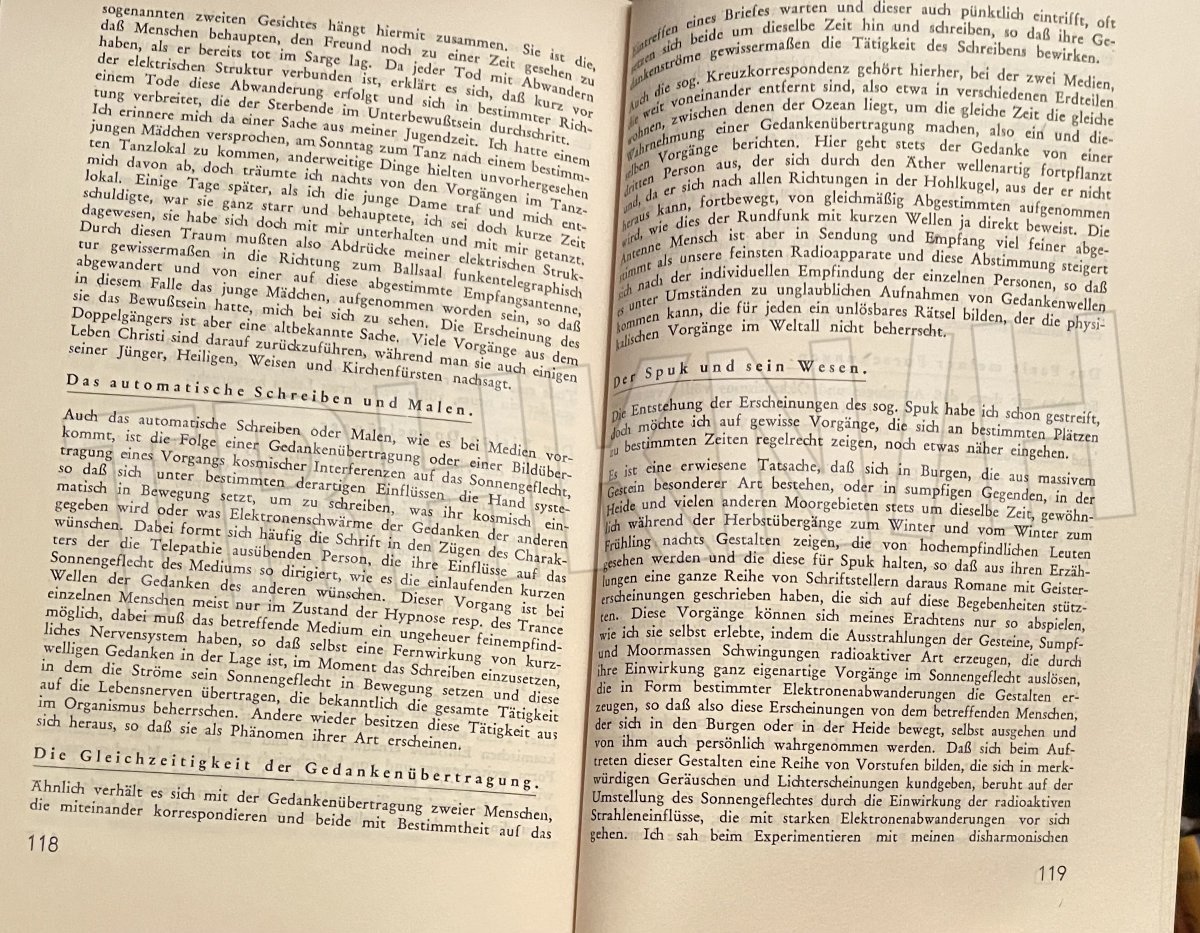 sogenannten zweiten Gesichtes hängt hiermit zusammen. Sie ist die,
daß Menschen behaupten, den Freund noch zu einer Zeit gesehen zu
haben, als er bereits tot im Sarge lag. Da jeder Tod mit Abwandern
der elektrischen Struktur verbunden ist, erklärt es sich, daß kurz vor
einem Tode diese Abwanderung erfolgt und sich in bestimmter Rich-
tung verbreitet, die der Sterbende im Unterbewußtsein durchschritt.
Ich erinnere mich da einer Sache aus meiner Jugendzeit. Ich hatte einem
jungen Mädchen versprochen, am Sonntag zum Tanz nach einem bestimm-
ten Tanzlokal zu kommen, anderweitige Dinge hielten unvorhergesehen
mich davon ab, doch träumte ich nachts von den Vorgängen im Tanz-
lokal. Einige Tage später, als ich die junge Dame traf und mich ent-
schuldigte, war sie ganz starr und behauptete, ich sei doch kurze Zeit
dagewesen, sie habe sich doch mit mir unterhalten und mit mir getanzt.
Durch diesen Traum mußten also Abdrücke meiner elektrischen Struk-
tur gewissermaßen in die Richtung zum Ballsaal funkentelegraphisch
abgewandert und von einer auf diese abgestimmte Empfangsantenne,
in diesem Falle das junge Mädchen, aufgenommen worden sein, so daß
sie das Bewußtsein hatte, mich bei sich zu sehen. Die Erscheinung des
Doppelgängers ist aber eine altbekannte Sache. Viele Vorgänge aus dem
Leben Christi sind darauf zurückzuführen, während man sie auch einigen
seiner Jünger, Heiligen, Weisen und Kirchenfürsten nachsagt.
Das automatische Schreiben und Malen.
Auch das automatische Schreiben oder Malen, wie es bei Medien vor-
kommt, ist die Folge einer Gedankenübertragung oder einer Bildüber-
tragung eines Vorgangs kosmischer Interferenzen auf das Sonnengeflecht,
so daß sich unter bestimmten derartigen Einflüssen die Hand syste-
matisch in Bewegung setzt, um zu schreiben, was ihr kosmisch ein-
gegeben wird oder was Elektronenschwärme der Gedanken der anderen
wünschen. Dabei formt sich häufig die Schrift in den Zügen des Charak-
ters der die Telepathie ausübenden Person, die ihre Einflüsse auf das
Sonnengeflecht des Mediums so dirigiert, wie es die einlaufenden kurzen
Wellen der Gedanken des anderen wünschen. Dieser Vorgang ist bei
einzelnen Menschen meist nur im Zustand der Hypnose resp. des Trance
möglich, dabei muß das betreffende Medium ein ungeheuer feinempfind-
liches Nervensystem haben, so daß selbst eine Fernwirkung von kurz-
welligen Gedanken in der Lage ist, im Moment das Schreiben einzusetzen,
in dem die Ströme sein Sonnengeflecht in Bewegung setzen und diese
auf die Lebensnerven übertragen, die bekanntlich die gesamte Tätigkeit
im Organismus beherrschen. Andere wieder besitzen diese Tätigkeit aus
sich heraus, so daß sie als Phänomen ihrer Art erscheinen.
Die Gleichzeitigkeit der Gedankenübertragung.
Ähnlich verhält es sich mit der Gedankenübertragung zweier Menschen,
die miteinander korrespondieren und beide mit Bestimmtheit auf das
118
Eintreffen eines Briefes warten und dieser auch pünktlich eintrifft, oft
setzen sich beide um dieselbe Zeit hin und schreiben, so daß ihre Ge-
dankenströme gewissermaßen die Tätigkeit des Schreibens bewirken.
Auch die sog. Kreuzkorrespondenz gehört hierher, bei der zwei Medien,
die weit voneinander entfernt sind, also etwa in verschiedenen Erdteilen
wohnen, zwischen denen der Ozean liegt, um die gleiche Zeit die gleiche
Wahrnehmung einer Gedankenübertragung machen, also ein und die-
selben Vorgänge berichten. Hier geht stets der Gedanke von einer
dritten Person aus, der sich durch den Äther wellenartig fortpflanzt
und, da er sich nach allen Richtungen in der Hohlkugel, aus der er nicht
heraus kann, fortbewegt, von gleichmäßig Abgestimmten aufgenommen
wird, wie dies der Rundfunk mit kurzen Wellen ja direkt beweist. Die
Antenne Mensch ist aber in Sendung und Empfang viel feiner abge-
stimmt als unsere feinsten Radioapparate und diese Abstimmung steigert
sich nach der individuellen Empfindung der einzelnen Personen, so daß
es unter Umständen zu unglaublichen Aufnahmen von Gedankenwellen
kommen kann, die für jeden ein unlösbares Rätsel bilden, der die physi-
kalischen Vorgänge im Weltall nicht beherrscht.
Der Spuk und sein Wesen.
Die Entstehung der Erscheinungen des sog. Spuk habe ich schon gestreift,
doch möchte ich auf gewisse Vorgänge, die sich an bestimmten Plätzen
zu bestimmten Zeiten regelrecht zeigen, noch etwas näher eingehen.
Es ist eine erwiesene Tatsache, daß sich in Burgen, die aus massivem
Gestein besonderer Art bestehen, oder in sumpfigen Gegenden, in der
Heide und vielen anderen Moorgebieten stets um dieselbe Zeit, gewöhn-
lich während der Herbstübergänge zum Winter und vom Winter zum
Frühling nachts Gestalten zeigen, die von hochempfindlichen Leuten
gesehen werden und die diese für Spuk halten, so daß aus ihren Erzäh-
lungen eine ganze Reihe von Schriftstellern daraus Romane mit Geister-
erscheinungen geschrieben haben, die sich auf diese Begebenheiten stütz-
ten. Diese Vorgänge können sich meines Erachtens nur so abspielen,
wie ich sie selbst erlebte, indem die Ausstrahlungen der Gesteine, Sumpf-
und Moormassen Schwingungen radioaktiver Art erzeugen, die durch
ihre Einwirkung ganz eigenartige Vorgänge im Sonnengeflecht auslösen,
die in Form bestimmter Elektronenabwanderungen die Gestalten er-
zeugen, so daß also diese Erscheinungen von dem betreffenden Menschen,
der sich in den Burgen oder in der Heide bewegt, selbst ausgehen und
von ihm auch persönlich wahrgenommen werden. Daß sich beim Auf-
treten dieser Gestalten eine Reihe von Vorstufen bilden, die sich in merk-
würdigen Geräuschen und Lichterscheinungen kundgeben, beruht auf der
Umstellung des Sonnengeflechtes durch die Einwirkung der radioaktiven
Strahleneinflüsse, die mit starken Elektronenabwanderungen vor sich
gehen. Ich sah beim Experimentieren mit meinen disharmonischen
119